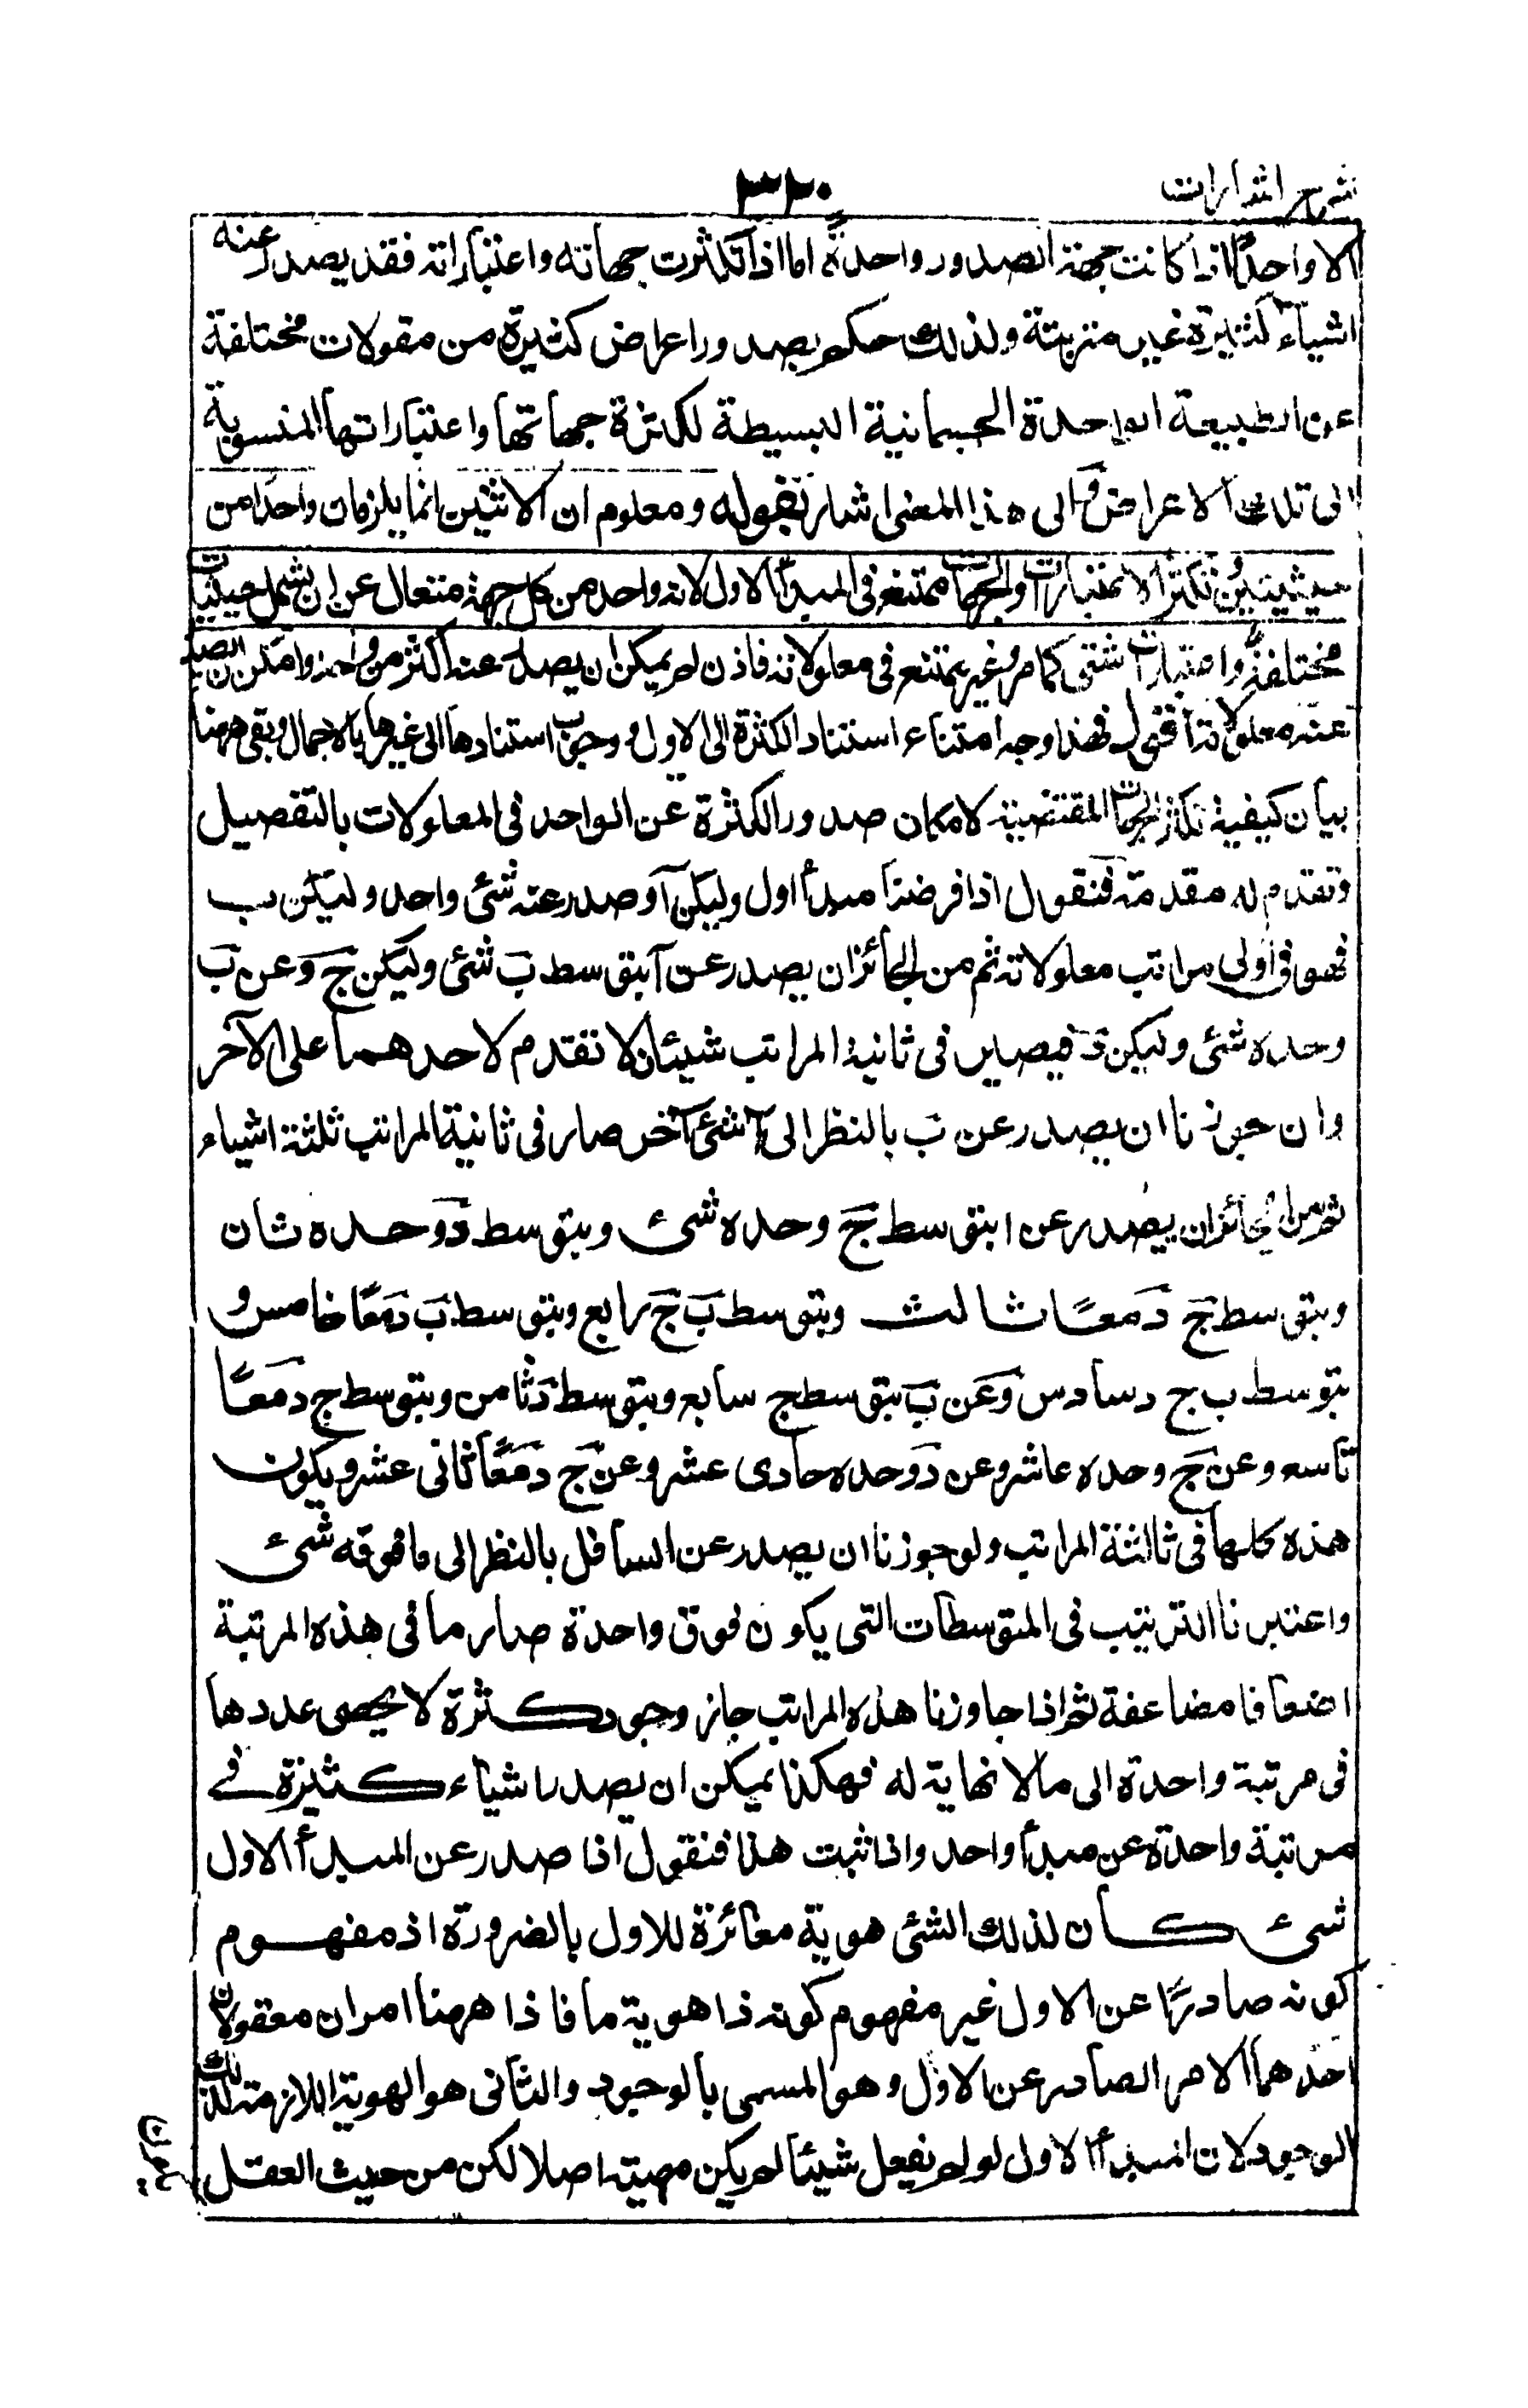 شرح اشارات
٣٢٠
الا واحدًا اذا كانت جهة الصدور واحدة اما اذا تكثرت جهاته واعتباراته فقد يصدر عنه
اشياء كثيرة غير مترتبة ولذلك حكم بصدور اعراض كثيرة من مقولات مختلفة
عن الطبيعة الواحدة الجسمانية البسيطة لكثرة جهاتها واعتباراتها المنسوبة
الى تلك الاعراض والى هذا المعنى اشار بقوله ومعلوم ان الاثنين انما يلزمان واحدا من
حيثيتين وتكثر الاعتبارات والجهات ممتنع فى المبدأ الاول لانه واحد من كل جهة متعال عن ان يشمل حيثيات
مختلفة واعتبارات شتى كما مر وغير ممتنع فى معلولاته فاذن لم يمكن ان يصدر عنه اكثر من واحد وامكن ان يصدر
عنه معلولاته اقول فهذا وجه امتناع استناد الكثرة الى الاول ووجوب استنادها الى غيرها بالاجمال وبقى ههنا
بيان كيفية تكثر الجهات المقتضية لامكان صدور الكثرة عن الواحد فى المعلولات بالتفصيل
ونقدم له مقدمة فنقول اذا فرضنا مبدأ اول وليكن آ وصدر عنه شئ واحد وليكن ب
فهو فى اولى مراتب معلولاته ثم من الجائز ان يصدر عن آ بتوسط ب شئ وليكن ج وعن ب
وحده شئ وليكن د فيصير فى ثانية المراتب شيئان لا تقدم لاحدهما على الآخر
وان جوزنا ان يصدر عن ب بالنظر الى آ شئ آخر صار فى ثانية المراتب ثلثة اشياء
ثم من الجائز ان يصدر عن ا بتوسط ج وحده شئ وبتوسط د وحده ثان
وبتوسط ج د معًا ثالث وبتوسط ب ج رابع وبتوسط ب د معًا خامس و
بتوسط ب ج د سادس وعن ب بتوسط ج سابع وبتوسط د ثامن وبتوسط ج د معًا
تاسع وعن ج وحده عاشر وعن د وحده حادى عشر وعن ج د معًا ثانى عشر ويكون
هذه كلها فى ثالثة المراتب ولو جوزنا ان يصدر عن السافل بالنظر الى ما فوقه شئ
واعتبرنا الترتيب فى المتوسطات التى يكون فوق واحدة صار ما فى هذه المرتبة
اضعافا مضاعفة ثم اذا جاوزنا هذه المراتب جاز وجود كثرة لا يحصى عددها
فى مرتبة واحدة الى ما لا نهاية له فهكذا يمكن ان يصدر اشياء كثيرة فى
مرتبة واحدة عن مبدأ واحد واذا ثبت هذا فنقول اذا صدر عن المبدأ الاول
شئ كان لذلك الشئ هوية مغائرة للاول بالضرورة اذ مفهوم
كونه صادرًا عن الاول غير مفهوم كونه ذا هوية ما فاذا ههنا امران معقولان
احدهما الامر الصادر عن الاول وهو المسمى بالوجود والثانى هو الهوية اللازمة لذلك
الوجود لان المبدأ الاول لو لم يفعل شيئا لم يكن مهيته اصلا لكن من حيث العقل